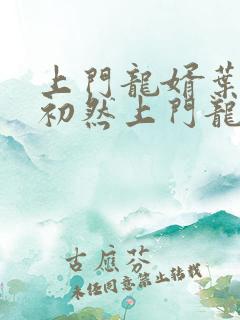 上門龍婿葉
初然上門龍
古應芬
未经同意禁止转载